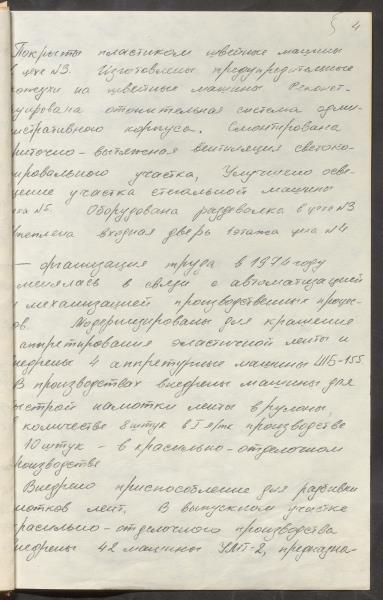 4
Покрыты пластиком швейные машины
в цехе №3. Изготовлены предупредительные
кожухи на швейные машины Реконст-
уирована отопительная система адми-
истративного корпуса. Смонтирована
риточно-вытяжная вентиляция светоко-
ировального участка, Улучшено осве-
щение участка стегальной машины
цеха №5. Оборудована раздевалка в цехе №3
Утеплена входная дверь 1 этажа цеха №4
— организация труда в 1974 году
менялась в связи с автоматизацией
и механизацией производственных процес-
ов. Модернизированы для крашения
аппретирования эластичной ленты и
недрены 4 аппретурные машины ШБ-155
В производствах внедрены машины для
ыстрой намотки ленты в рулоны,
количестве 8 штук в I производстве
10 штук - в красильно-отделочном
роизводстве
Внедрено приспособление для разбивки
мотков лент. В выпускном участке
расильно-отделочного производства
недрены 42 машины УЛТ-2, предназна-